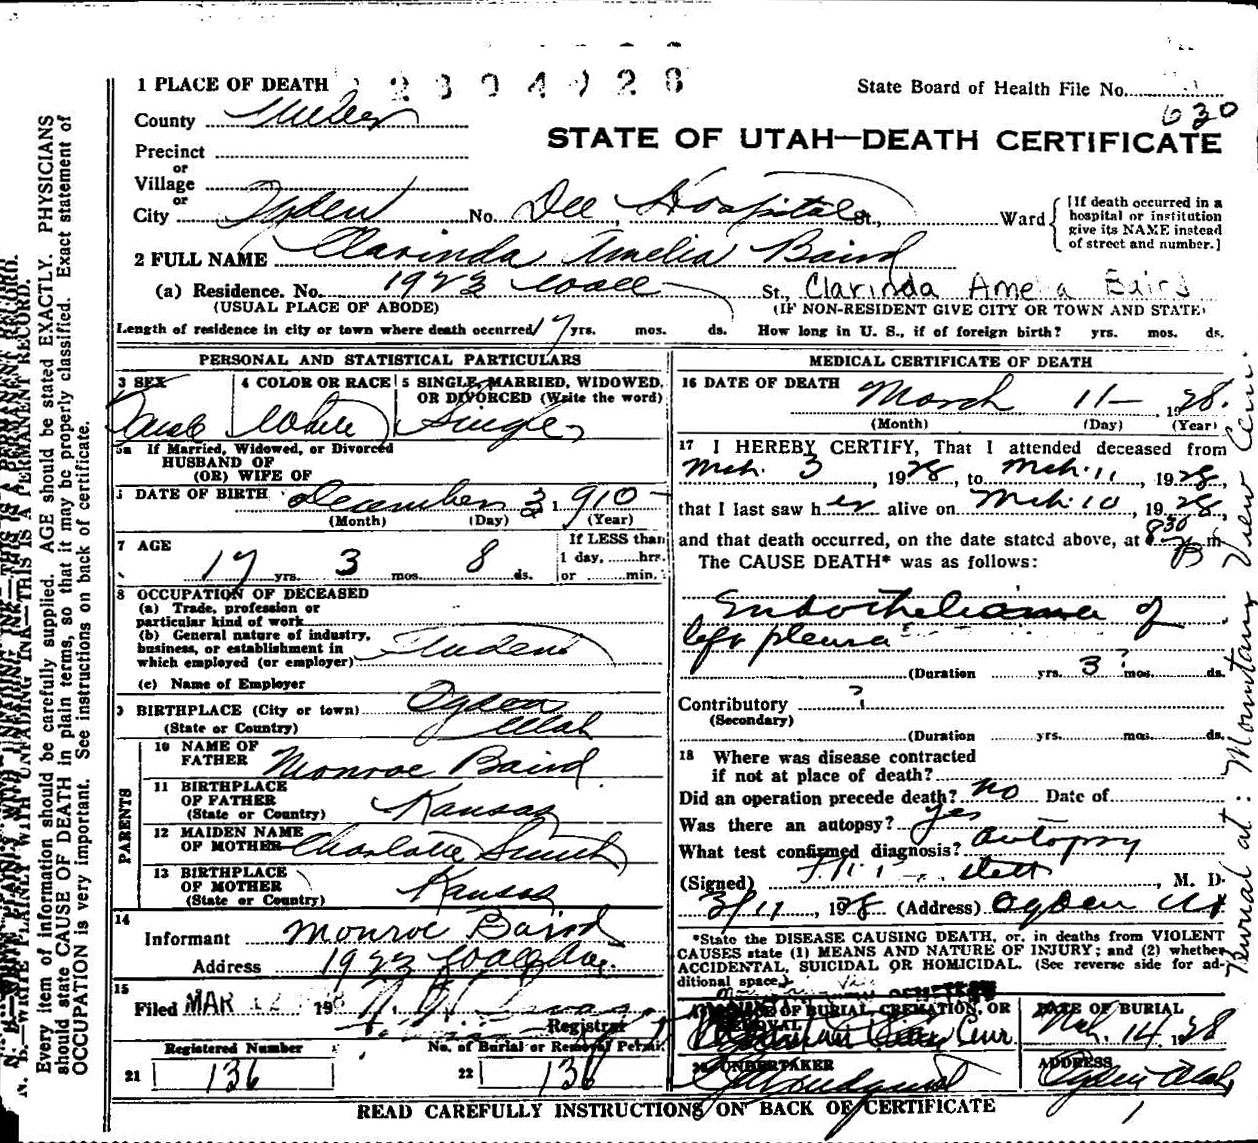 1 PLACE OF DEATH 2804928
State Board of Health File No. 630
County Weber
STATE OF UTAH—DEATH CERTIFICATE
Precinct
or
Village
or
City Ogden No. Dee Hospital St., Ward
[If death occurred in a
hospital or institution
give its NAME instead
of street and number.]
2 FULL NAME Clarinda Amelia Baird
(a) Residence. No. 1923 Wall St. Clarinda Amelia Baird
(USUAL PLACE OF ABODE) (IF NON-RESIDENT GIVE CITY OR TOWN AND STATE)
Length of residence in city or town where death occurred 17 yrs. mos. ds. How long in U. S., if of foreign birth? yrs. mos. ds.
PERSONAL AND STATISTICAL PARTICULARS
3 SEX 4 COLOR OR RACE 5 SINGLE, MARRIED, WIDOWED,
OR DIVORCED (Write the word)
White Single
5a If Married, Widowed, or Divorced
HUSBAND OF
(OR) WIFE OF
DATE OF BIRTH December 3 1910
(Month) (Day) (Year)
7 AGE If LESS than
1 day, hrs.
17 yrs. 3 mos. 8 ds. or min.
8 OCCUPATION OF DECEASED
(a) Trade, profession or
particular kind of work
(b) General nature of industry,
business, or establishment in
which employed (or employer) Student
(c) Name of Employer
9 BIRTHPLACE (City or town) Ogden
(State or Country) Utah
PARENTS
10 NAME OF
FATHER Monroe Baird
11 BIRTHPLACE
OF FATHER
(State or Country) Kansas
12 MAIDEN NAME
OF MOTHER Charlotte Smith
13 BIRTHPLACE
OF MOTHER
(State or Country) Kansas
14
Informant Monroe Baird
Address 1923 Wall Ave.
15
Filed MAR 12 1928
Registrar
Registered Number No. of Burial or Removal Permit
21 136 22 136
MEDICAL CERTIFICATE OF DEATH
16 DATE OF DEATH March 11— 1928.
(Month) (Day) (Year)
17 I HEREBY CERTIFY, That I attended deceased from
Mch. 3, 1928, to Mch. 11, 1928,
that I last saw her alive on Mch. 10, 1928,
and that death occurred, on the date stated above, at 8 30 m
The CAUSE DEATH* was as follows:
Endothelioma of
left pleura
(Duration yrs. 3? mos. ds.
Contributory ?
(Secondary)
(Duration yrs. mos. ds.
18 Where was disease contracted
if not at place of death?
Did an operation precede death? no Date of
Was there an autopsy? yes
What test confirmed diagnosis? autopsy
(Signed) , M. D.
3/11, 1928 (Address) Ogden Ut
*State the DISEASE CAUSING DEATH, or, in deaths from VIOLENT
CAUSES state (1) MEANS AND NATURE OF INJURY; and (2) whether
ACCIDENTAL, SUICIDAL OR HOMICIDAL. (See reverse side for ad-
ditional space.)
OF BURIAL, CREMATION, OR
REMOVAL
DATE OF BURIAL
Mch. 14 1928
UNDERTAKER
ADDRESS
Ogden Utah
READ CAREFULLY INSTRUCTIONS ON BACK OF CERTIFICATE
N. B.—WRITE PLAINLY WITH UNFADING INK—THIS IS A PERMANENT RECORD.
Every item of information should be carefully supplied. AGE should be stated EXACTLY. PHYSICIANS
should state CAUSE OF DEATH in plain terms, so that it may be properly classified. Exact statement of
OCCUPATION is very important. See instructions on back of certificate.
Removal at: Mountain View Cem.